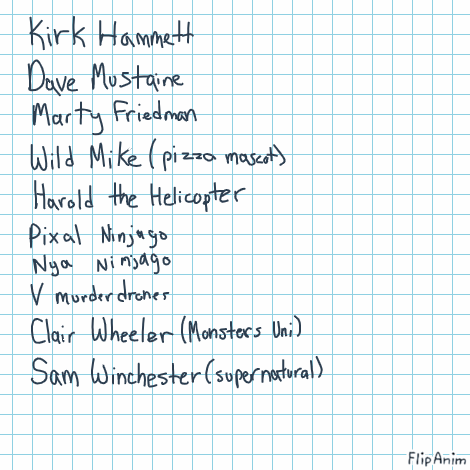 Kirk Hammett
Dave Mustaine
Marty Friedman
Wild Mike (pizza mascot)
Harold the Helicopter
Pixal Ninjago
Nya Ninjago
V murder drones
Clair Wheeler (Monsters Uni)
Sam Winchester (supernatural)
FlipAnim